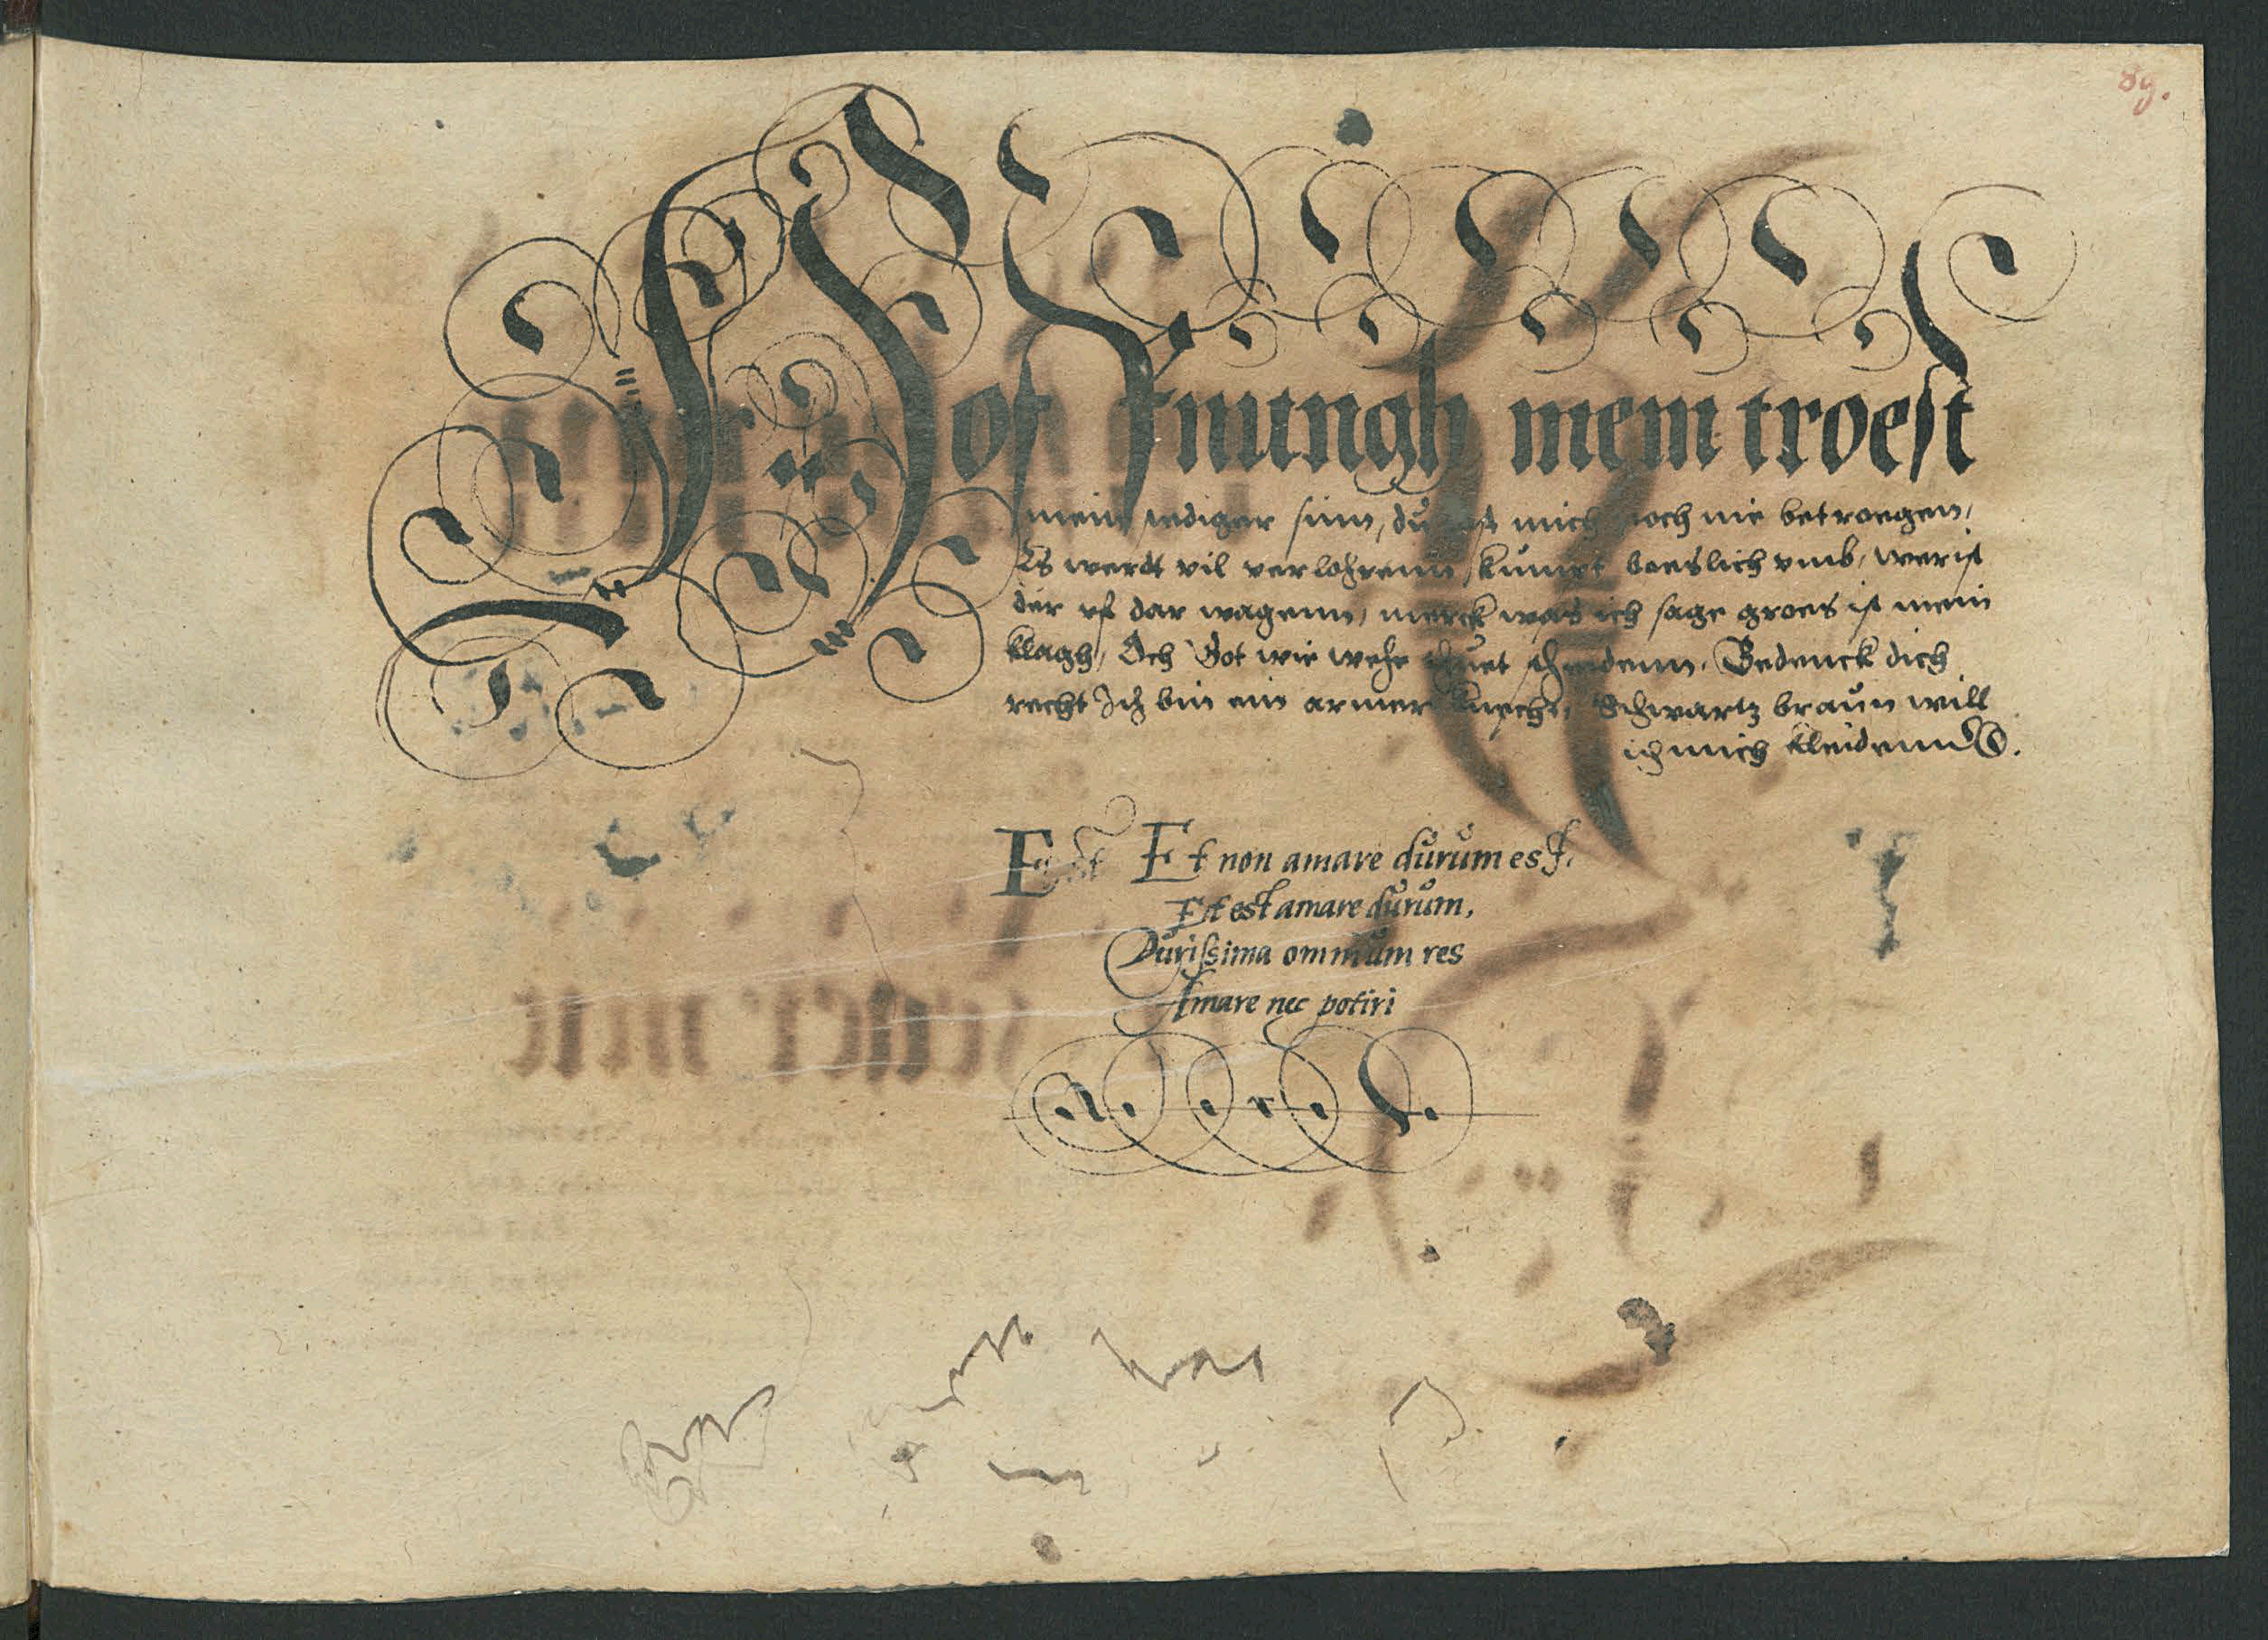 89.
Hoffnungh mein troest
mein sediger sinn, du hast mich noch nie betroegen,
Es werdt vil verlohrenn kumpt boeslich vmb, wer ist
der es dar wagenn, merck was ich sage groes ist mein
klagh, Och Got wie wehe thuet scheidenn. Bedenck dich
recht Ich bin ein armer knecht, Schwartz braun will
ich mich kleidenn.
Et non amare durum est.
Et est amare durum,
Durissima omnium res
Amare nec potiri